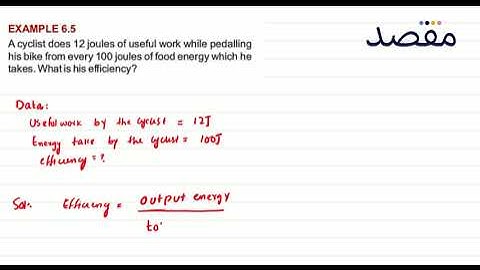 EXAMPLE 6.5
مقصد
A cyclist does 12 joules of useful work while pedalling
his bike from every 100 joules of food energy which he
takes. What is his efficiency?
Data:
Useful work by the cyclist = 12J
Energy take by the cyclist = 100J
efficiency = ?
Sol: Efficiency = output energy
to